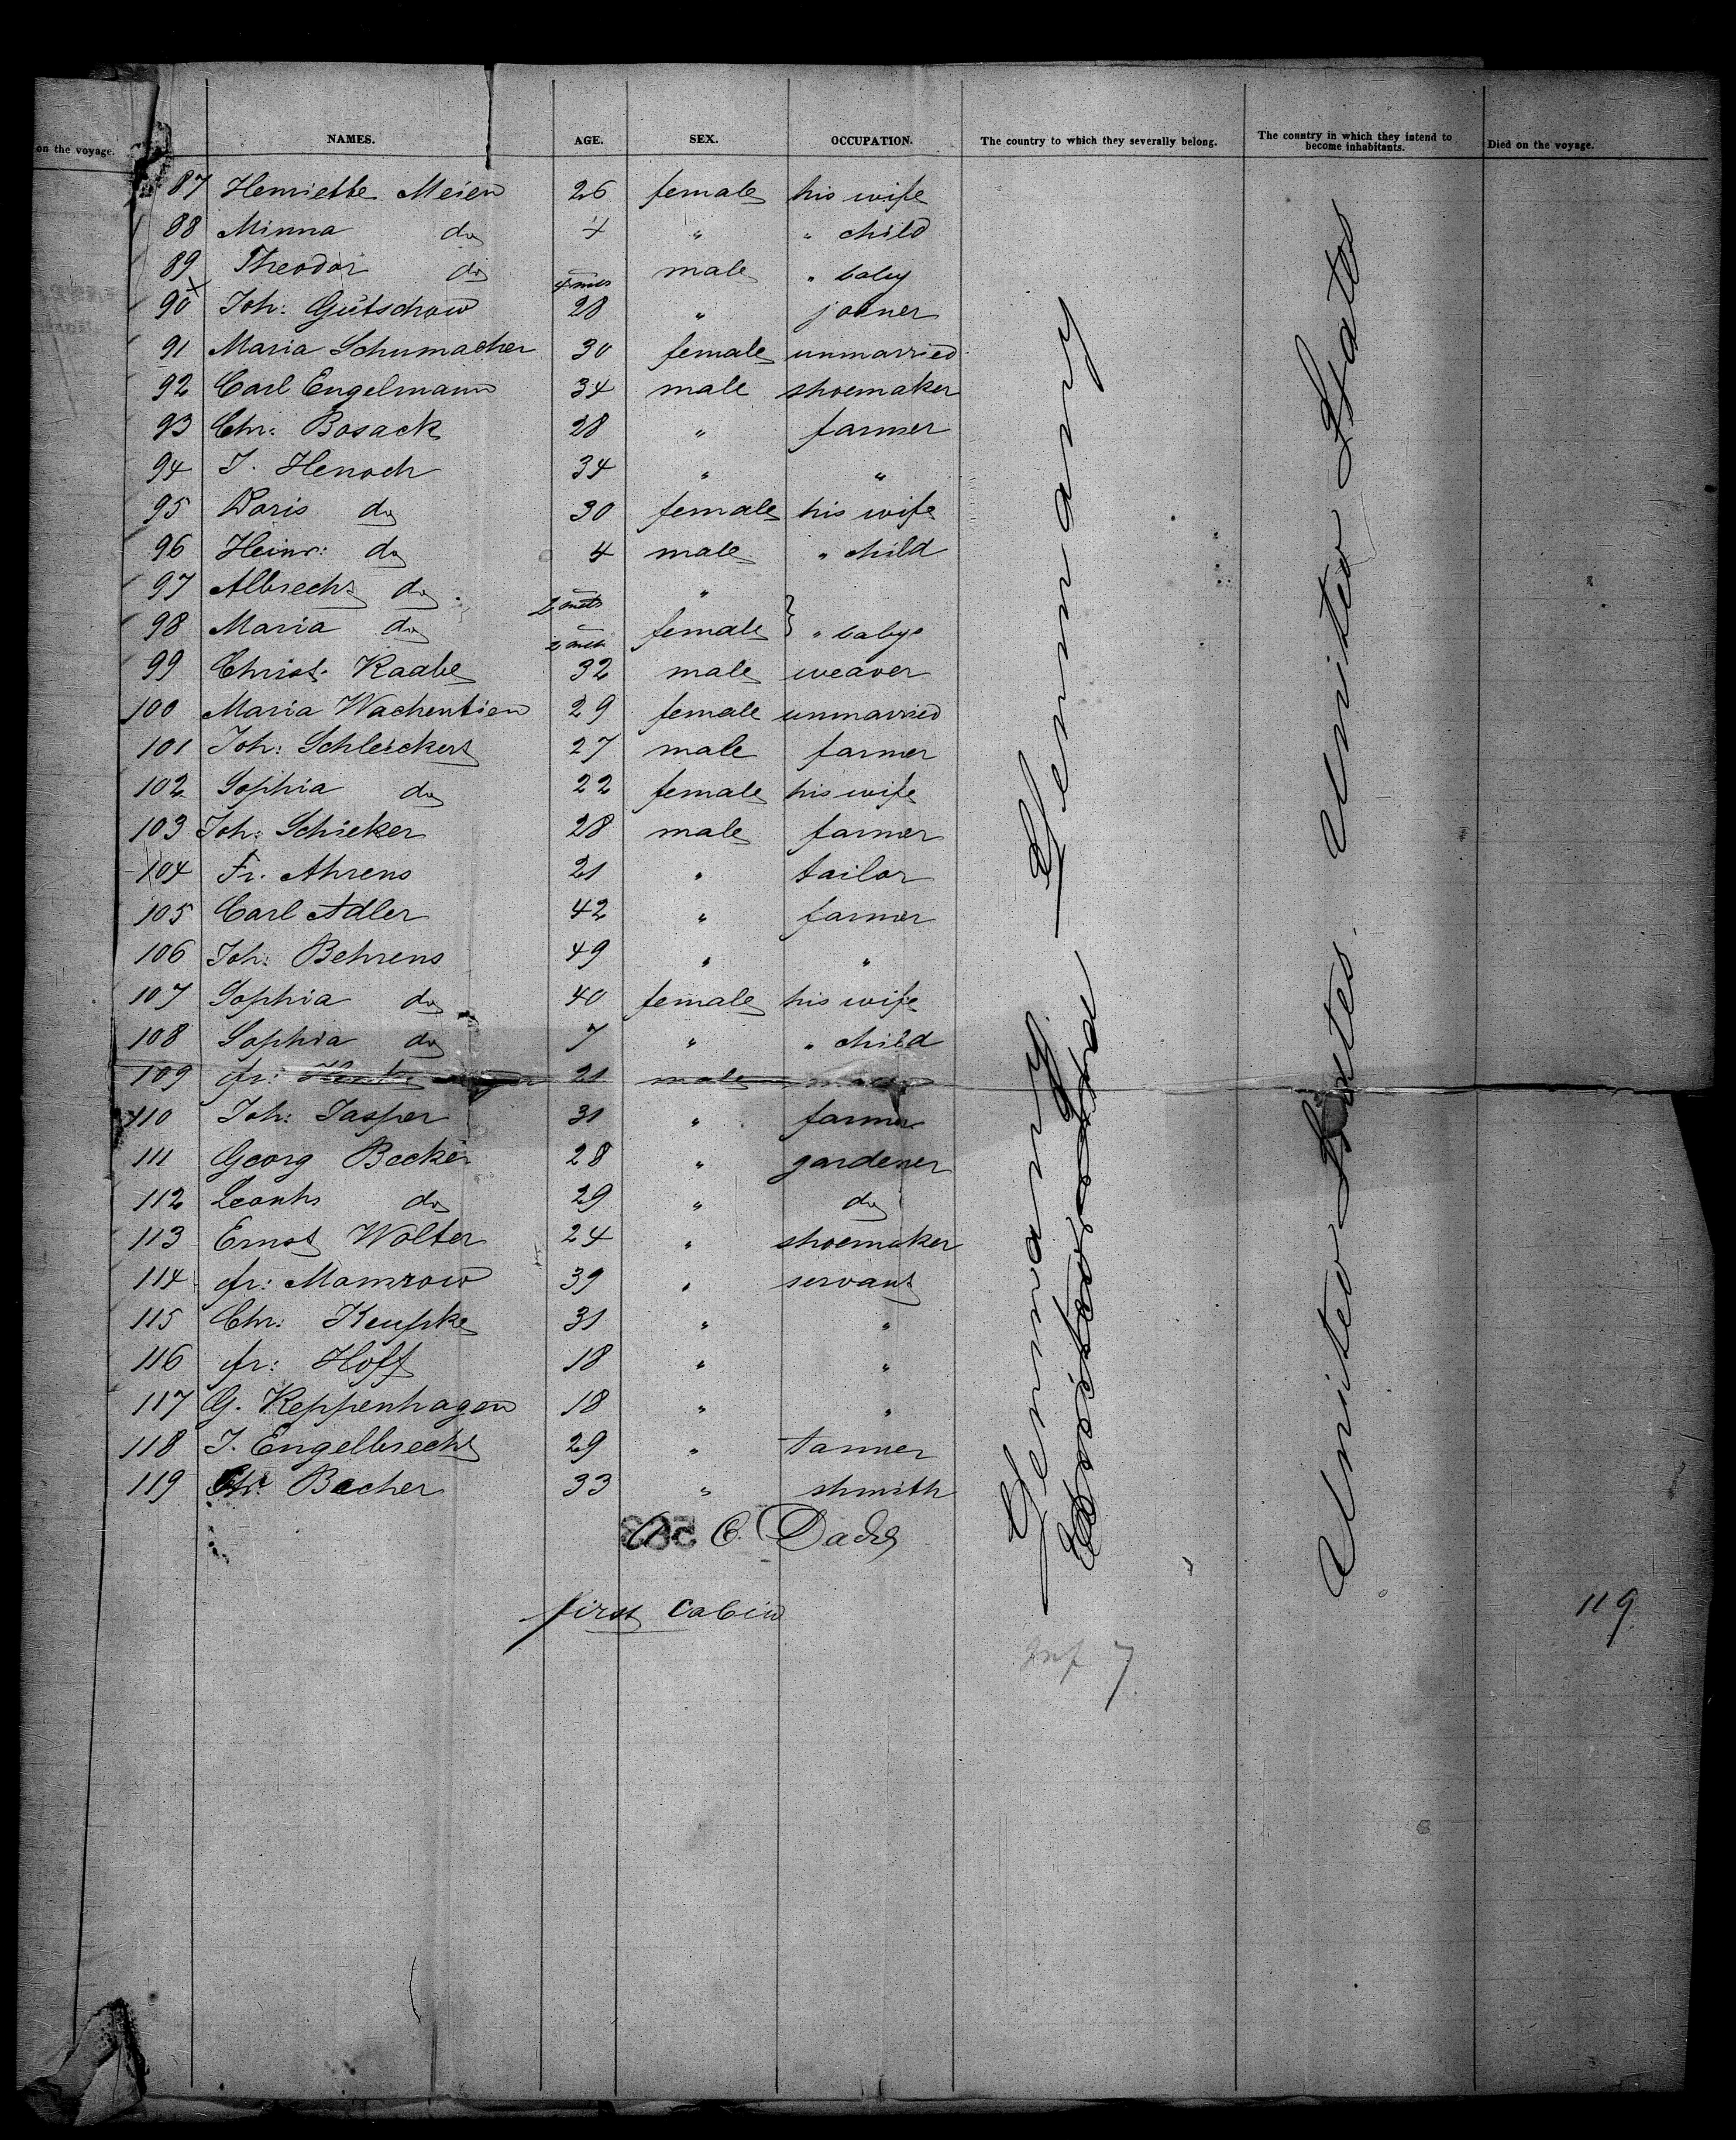 on the voyage. NAMES. AGE. SEX. OCCUPATION. The country to which they severally belong. The country in which they intend to become inhabitants. Died on the voyage.
87 Henriette Meien 26 female his wife
88 Minna do 4 " " child
89 Theodor do 4 mts male " baby
90 Joh: Gütschow 28 " joiner
91 Maria Schumacher 30 female unmarried
92 Carl Engelmann 34 male shoemaker
93 Chr: Bosack 28 " farmer
94 J. Henoch 34 " "
95 Doris do 30 female his wife
96 Heinr: do 4 male " child
97 Albrecht do 2 mts "
98 Maria do 2 mts female } " babys
99 Christ. Raabe 32 male weaver
100 Maria Wachentien 29 female unmarried
101 Joh: Schleickert 27 male farmer
102 Sophia do 22 female his wife
103 Joh: Schieker 28 male farmer
104 Fr. Ahrens 21 " tailor
105 Carl Adler 42 " farmer
106 Joh: Behrens 49 " "
107 Sophia do 40 female his wife
108 Sophia do 7 " " child
109 fr: 21 male
110 Joh: Jasper 31 " farmer
111 Georg Becker 28 " gardener
112 Leonh do 29 " do
113 Ernst Wolter 24 " shoemaker
114 fr: Mamrow 39 " servant
115 Chr: Keupke 31 " "
116 fr: Hoff 18 " "
117 G. Keppenhagen 18 " "
118 J. Engelbrecht 29 " tanner
119 Chr. Becher 33 " shmith
Germany
Germany
United States
United States.
C. Dade
first cabin
119
Inf 7